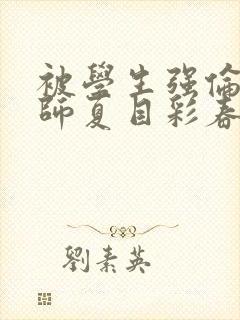 被學生强倫
師夏目彩春
劉素英